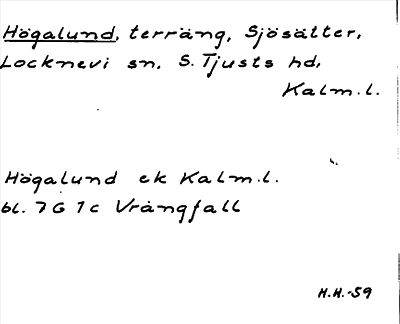 Högalund, terräng, Sjösätter,
Locknevi sn, S. Tjusts hd,
Kalm.l.
Högalund ek Kalm.l.
bl. 7G 1c Vrångfall
H.H.-59